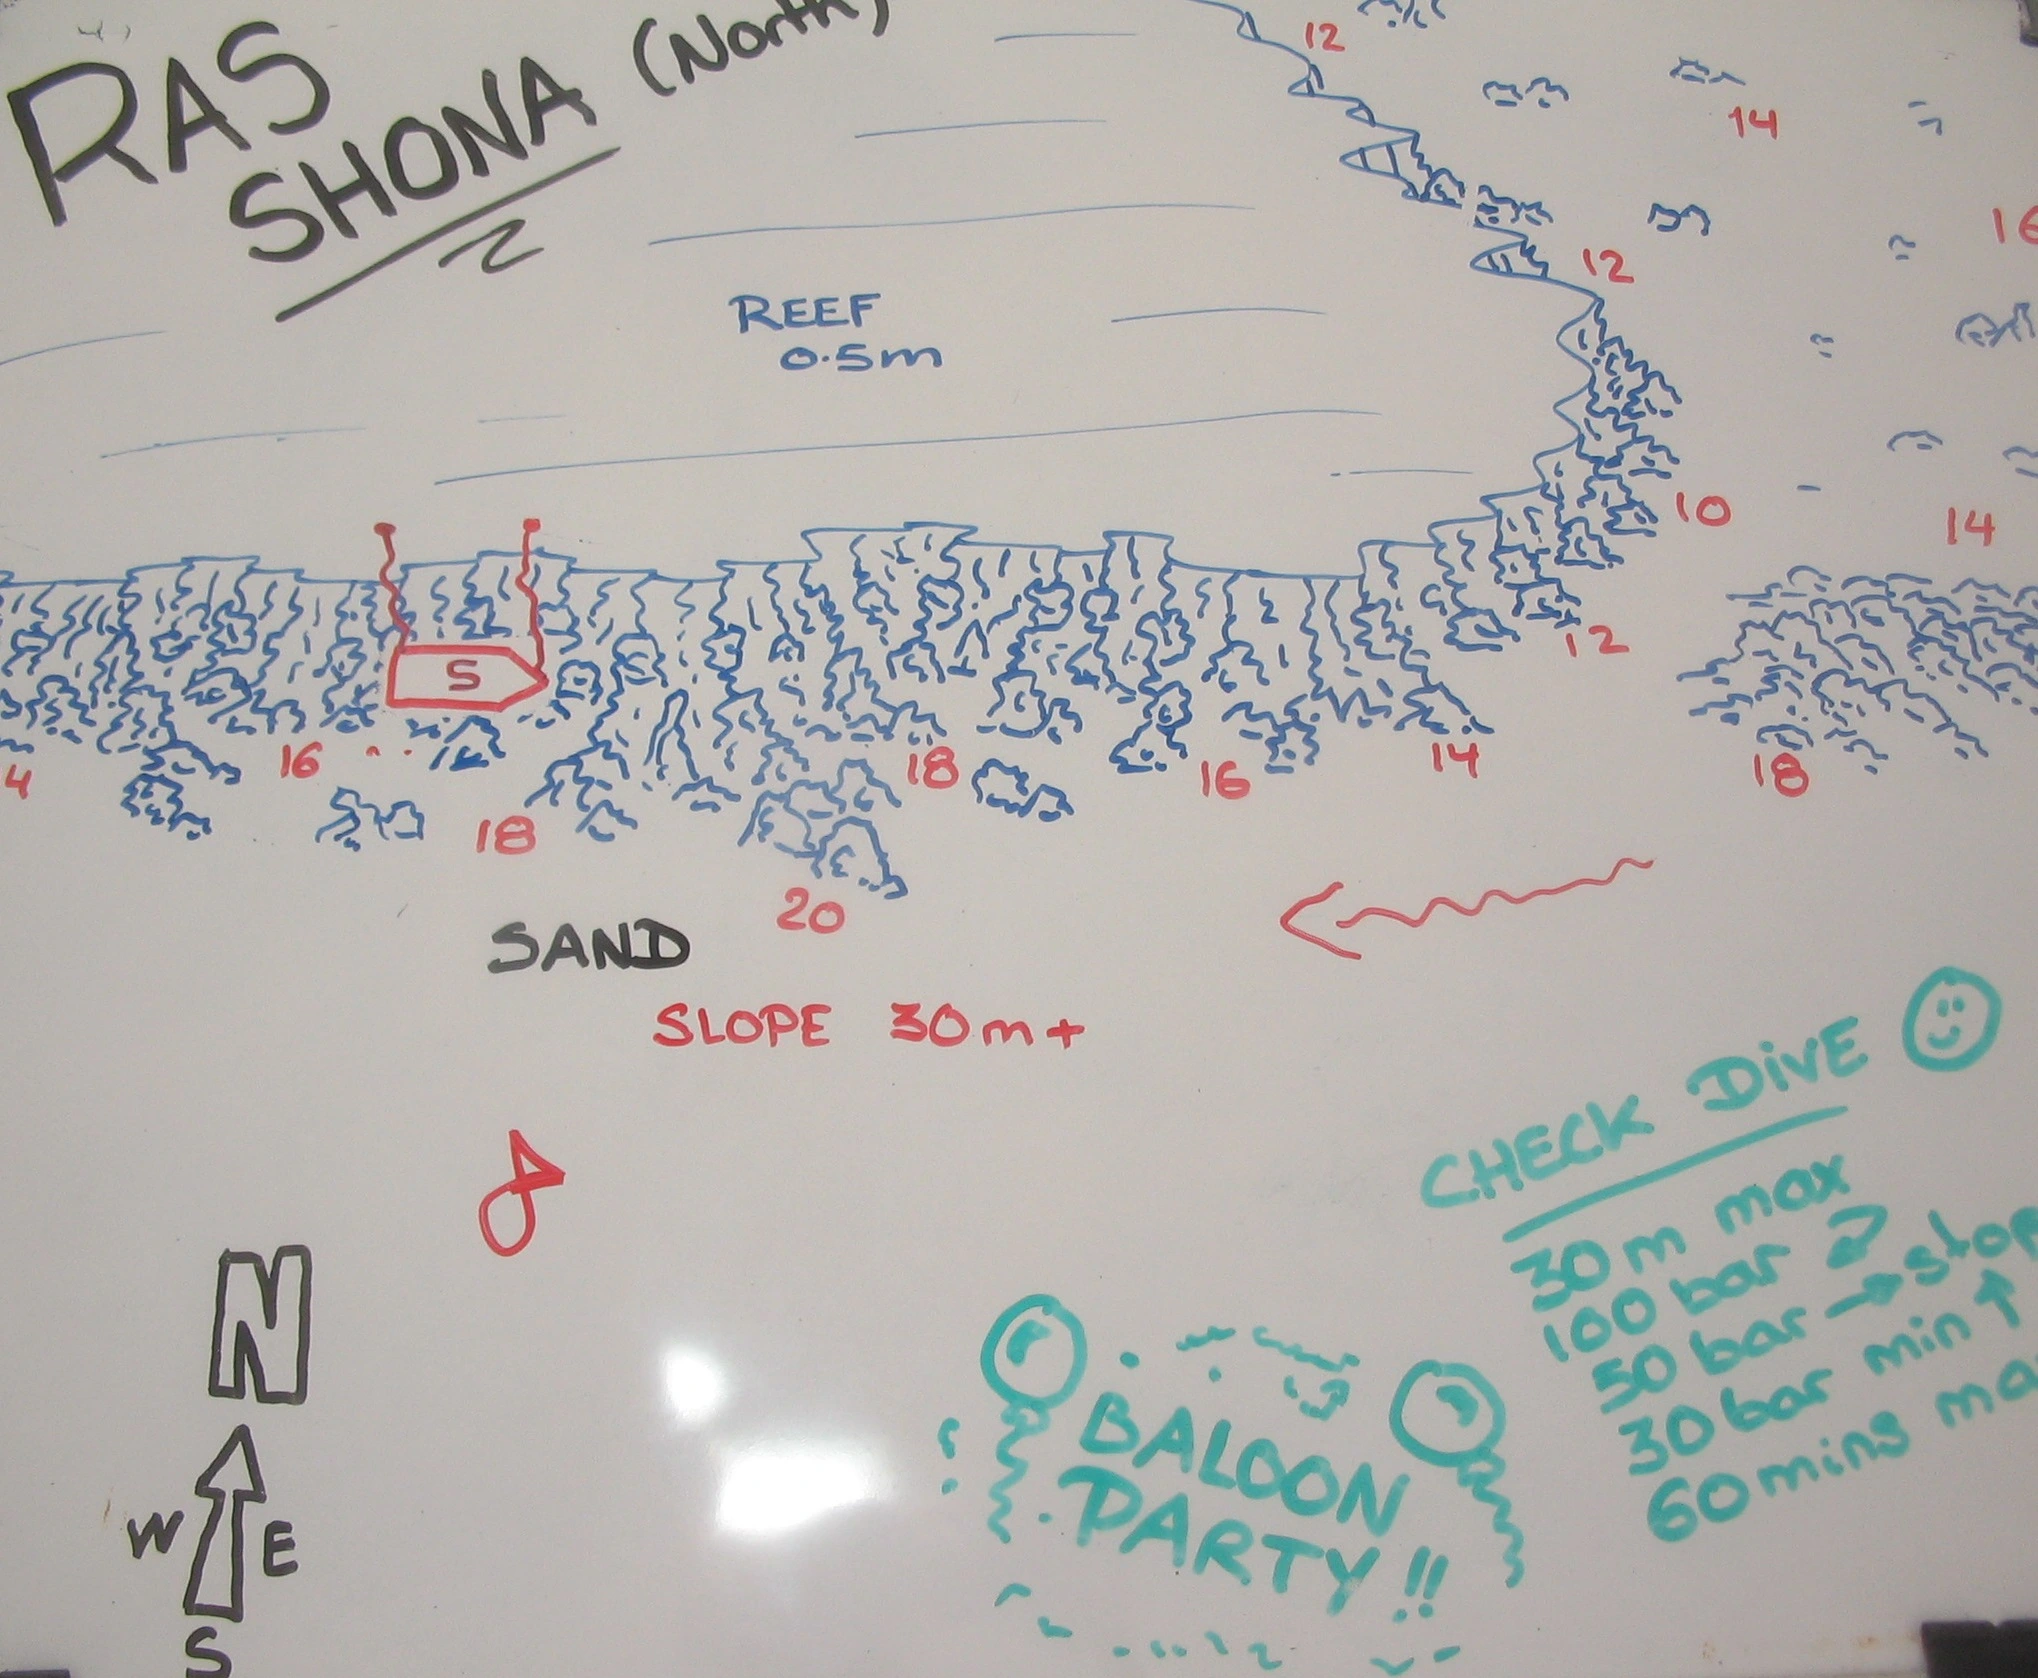 RAS
SHONA (North)
12
14
16
12
REEF
0.5m
10
14
12
S
4
16
18
16
14
18
18
20
SAND
SLOPE 30m+
CHECK DiVE
30m max
100 bar
50 bar → stop
30 bar min ↑
60 mins
BALOON
PARTY!!
N
W E
S